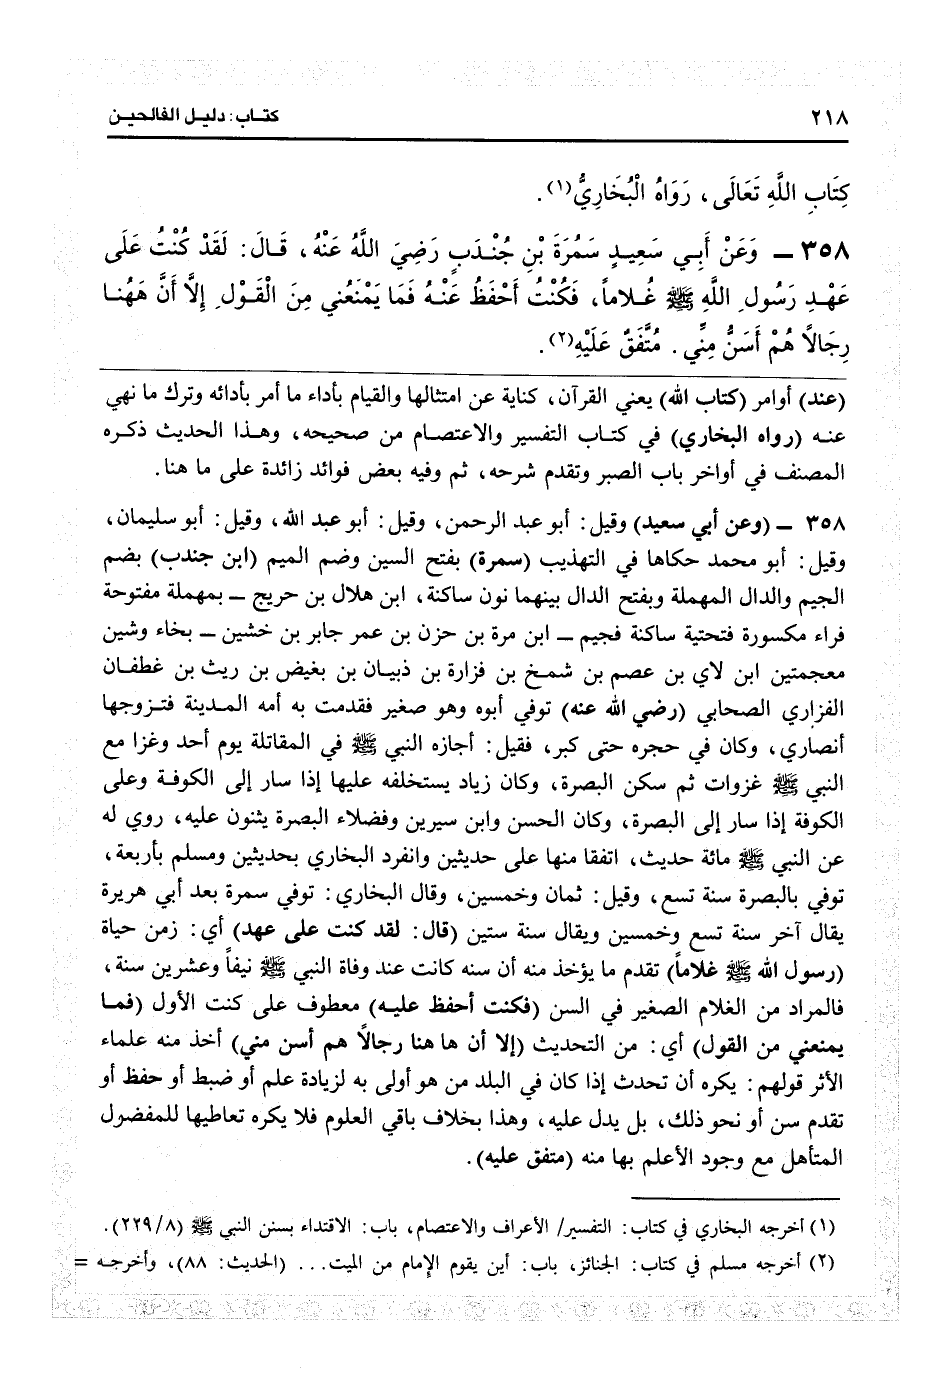 ٢١٨
كتاب: دليل الفالحين
كِتَابِ اللَّهِ تَعَالَى، رَوَاهُ الْبُخَارِيُّ(١).
٣٥٨ ـ وَعَنْ أَبِي سَعِيدٍ سَمُرَةَ بْنِ جُنْدَبٍ رَضِيَ اللَّهُ عَنْهُ، قَالَ: لَقَدْ كُنْتُ عَلَى
عَهْدِ رَسُولِ اللَّهِ ﷺ غُلاماً، فَكُنْتُ أَحْفَظُ عَنْهُ فَمَا يَمْنَعُنِي مِنَ الْقَوْلِ إِلَّا أَنَّ هٰهُنَا
رِجَالًا هُمْ أَسَنُّ مِنِّي. مُتَّفَقٌ عَلَيْهِ(٢).
(عند) أوامر (كتاب الله) يعني القرآن، كناية عن امتثالها والقيام بأداء ما أمر بأدائه وترك ما نهي
عنه (رواه البخاري) في كتاب التفسير والاعتصام من صحيحه، وهذا الحديث ذكره
المصنف في أواخر باب الصبر وتقدم شرحه، ثم وفيه بعض فوائد زائدة على ما هنا.
٣٥٨ ـ (وعن أبي سعيد) وقيل: أبو عبد الرحمن، وقيل: أبو عبد الله، وقيل: أبو سليمان،
وقيل: أبو محمد حكاها في التهذيب (سمرة) بفتح السين وضم الميم (ابن جندب) بضم
الجيم والدال المهملة وبفتح الدال بينهما نون ساكنة، ابن هلال بن حريج ـ بمهملة مفتوحة
فراء مكسورة فتحتية ساكنة فجيم ـ ابن مرة بن حزن بن عمر جابر بن خشين ـ بخاء وشين
معجمتين ابن لاي بن عصم بن شمخ بن فزارة بن ذبيان بن بغيض بن ريث بن غطفان
الفزاري الصحابي (رضي الله عنه) توفي أبوه وهو صغير فقدمت به أمه المدينة فتزوجها
أنصاري، وكان في حجره حتى كبر، فقيل: أجازه النبي ﷺ في المقاتلة يوم أحد وغزا مع
النبي ﷺ غزوات ثم سكن البصرة، وكان زياد يستخلفه عليها إذا سار إلى الكوفة وعلى
الكوفة إذا سار إلى البصرة، وكان الحسن وابن سيرين وفضلاء البصرة يثنون عليه، روي له
عن النبي ﷺ مائة حديث، اتفقا منها على حديثين وانفرد البخاري بحديثين ومسلم بأربعة،
توفي بالبصرة سنة تسع، وقيل: ثمان وخمسين، وقال البخاري: توفي سمرة بعد أبي هريرة
يقال آخر سنة تسع وخمسين ويقال سنة ستين (قال: لقد كنت على عهد) أي: زمن حياة
(رسول الله ﷺ غلاماً) تقدم ما يؤخذ منه أن سنه كانت عند وفاة النبي ﷺ نيفاً وعشرين سنة،
فالمراد من الغلام الصغير في السن (فكنت أحفظ عليه) معطوف على كنت الأول (فما
يمنعني من القول) أي: من التحديث (إلا أن ها هنا رجالاً هم أسن مني) أخذ منه علماء
الأثر قولهم: يكره أن تحدث إذا كان في البلد من هو أولى به لزيادة علم أو ضبط أو حفظ أو
تقدم سن أو نحو ذلك، بل يدل عليه، وهذا بخلاف باقي العلوم فلا يكره تعاطيها للمفضول
المتأهل مع وجود الأعلم بها منه (متفق عليه).
(١) أخرجه البخاري في كتاب: التفسير/ الأعراف والاعتصام، باب: الاقتداء بسنن النبي ﷺ (٢٢٩/٨).
(٢) أخرجه مسلم في كتاب: الجنائز، باب: أين يقوم الإمام من الميت... (الحديث: ٨٨)، وأخرجه =